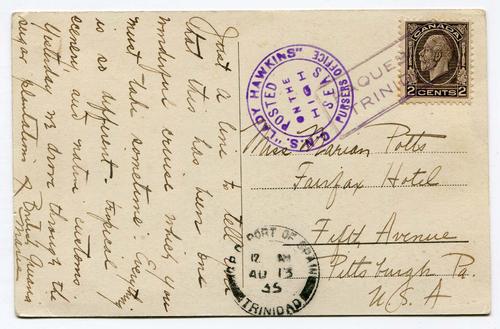 Just a line to tell you
that this has been one
wonderful cruise which you
must take sometime. Everything
is so different - tropical
scenery and native customs.
Yesterday we drove through the
sugar plantation of British Guiana
Marie
POSTED
ON THE
HIGH
SEAS
C.N.S. "LADY HAWKINS"
PURSER'S OFFICE
TRINIDAD
CANADA
2 CENTS 2
Miss Marian Potts
Fairfax Hotel
Fifth Avenue
Pittsburgh Pa.
U.S.A
PORT OF SPAIN
AU 13
35
TRINIDAD